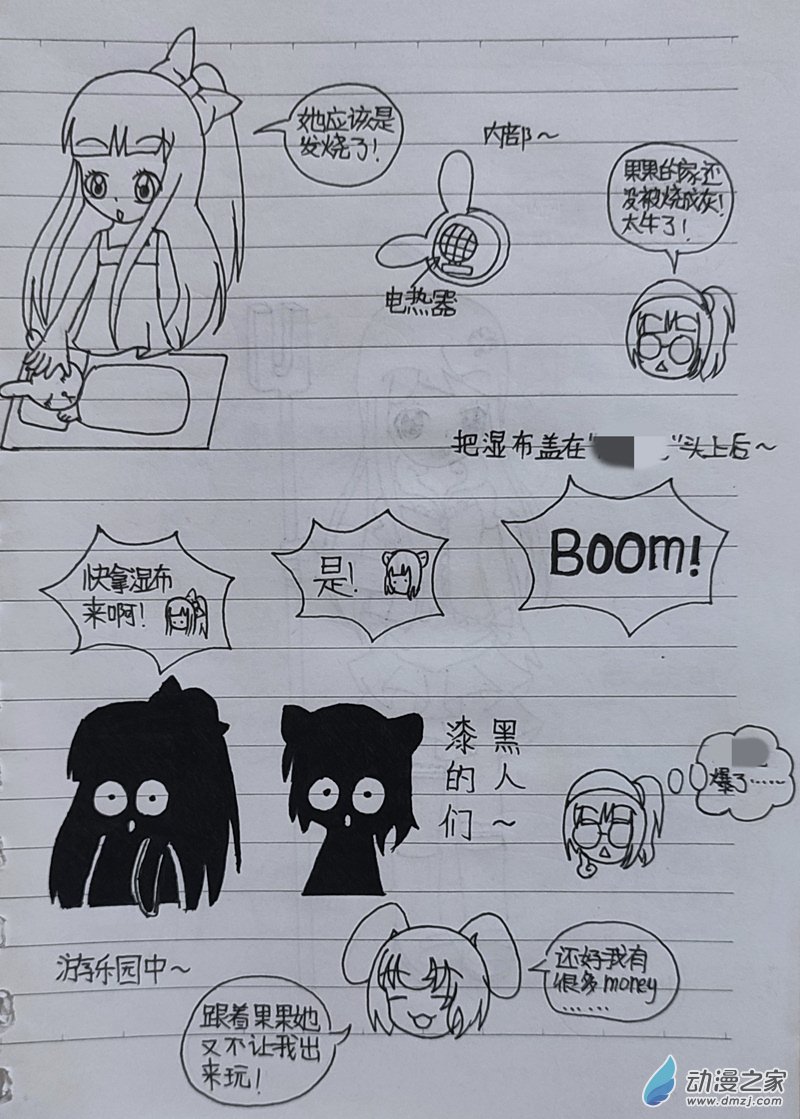 她应该是
发烧了！
内部～
电热器
果果的家还
没被烧成灰！
太牛了！
把湿布盖在“ ”头上后～
快拿湿布
来啊！
是！
BOOM!
漆黑
的人
们～
爆了……
游乐园中～
还好我有
很多money
……
跟着果果她
又不让我出
来玩！
动漫之家
www.dmzj.com